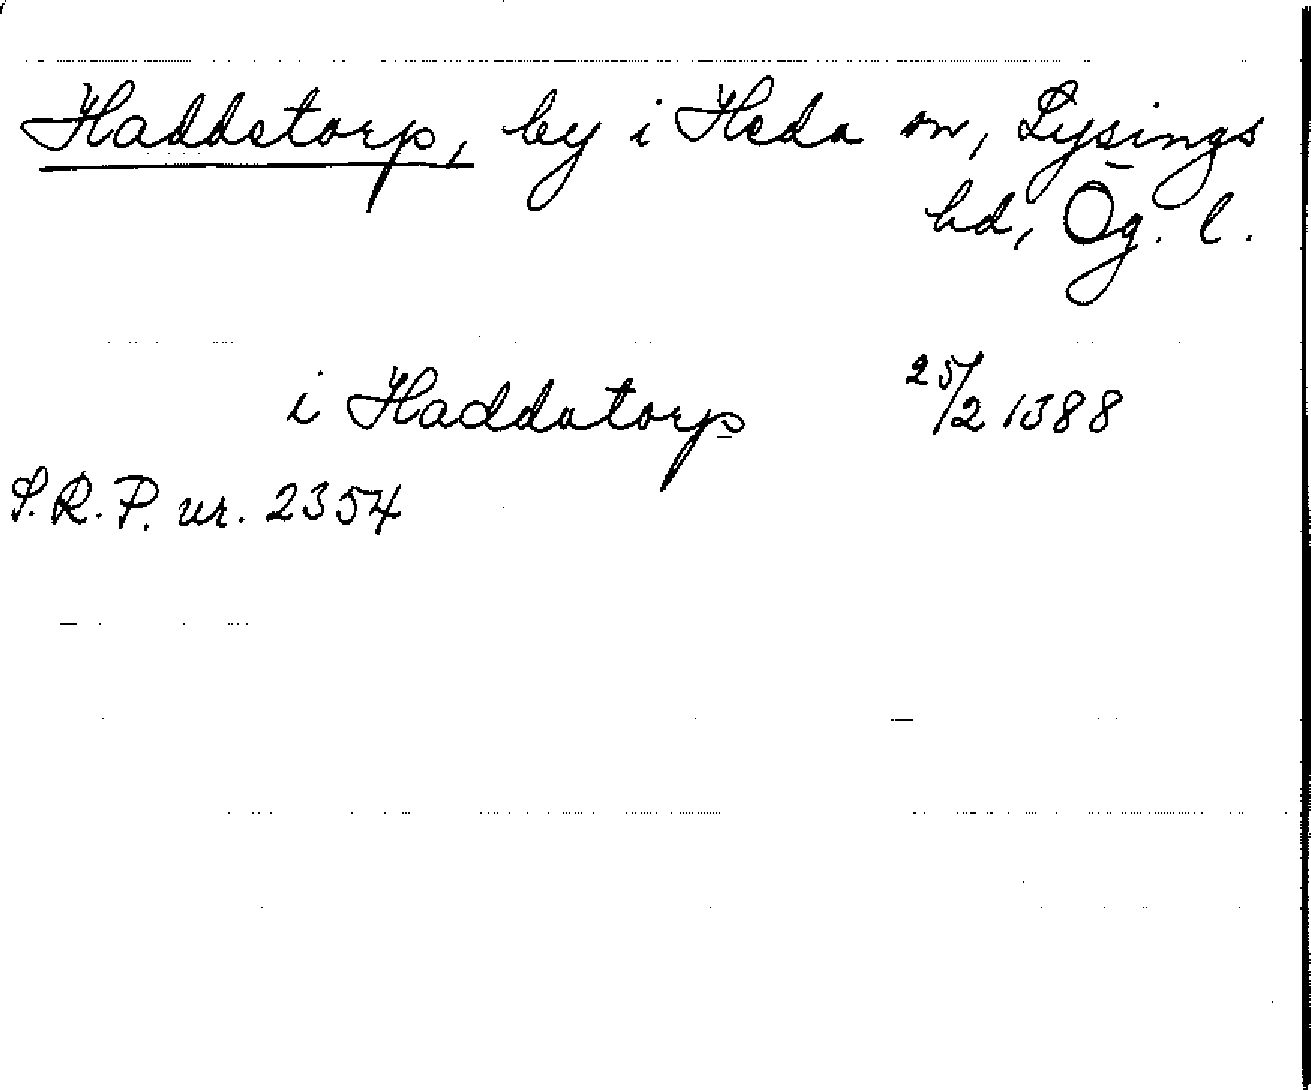 Haddstorp, by i Heda sn, Lysings
hd, Ög. l.
i Haddatorp 25/2 1388
S.R.P. nr. 2354